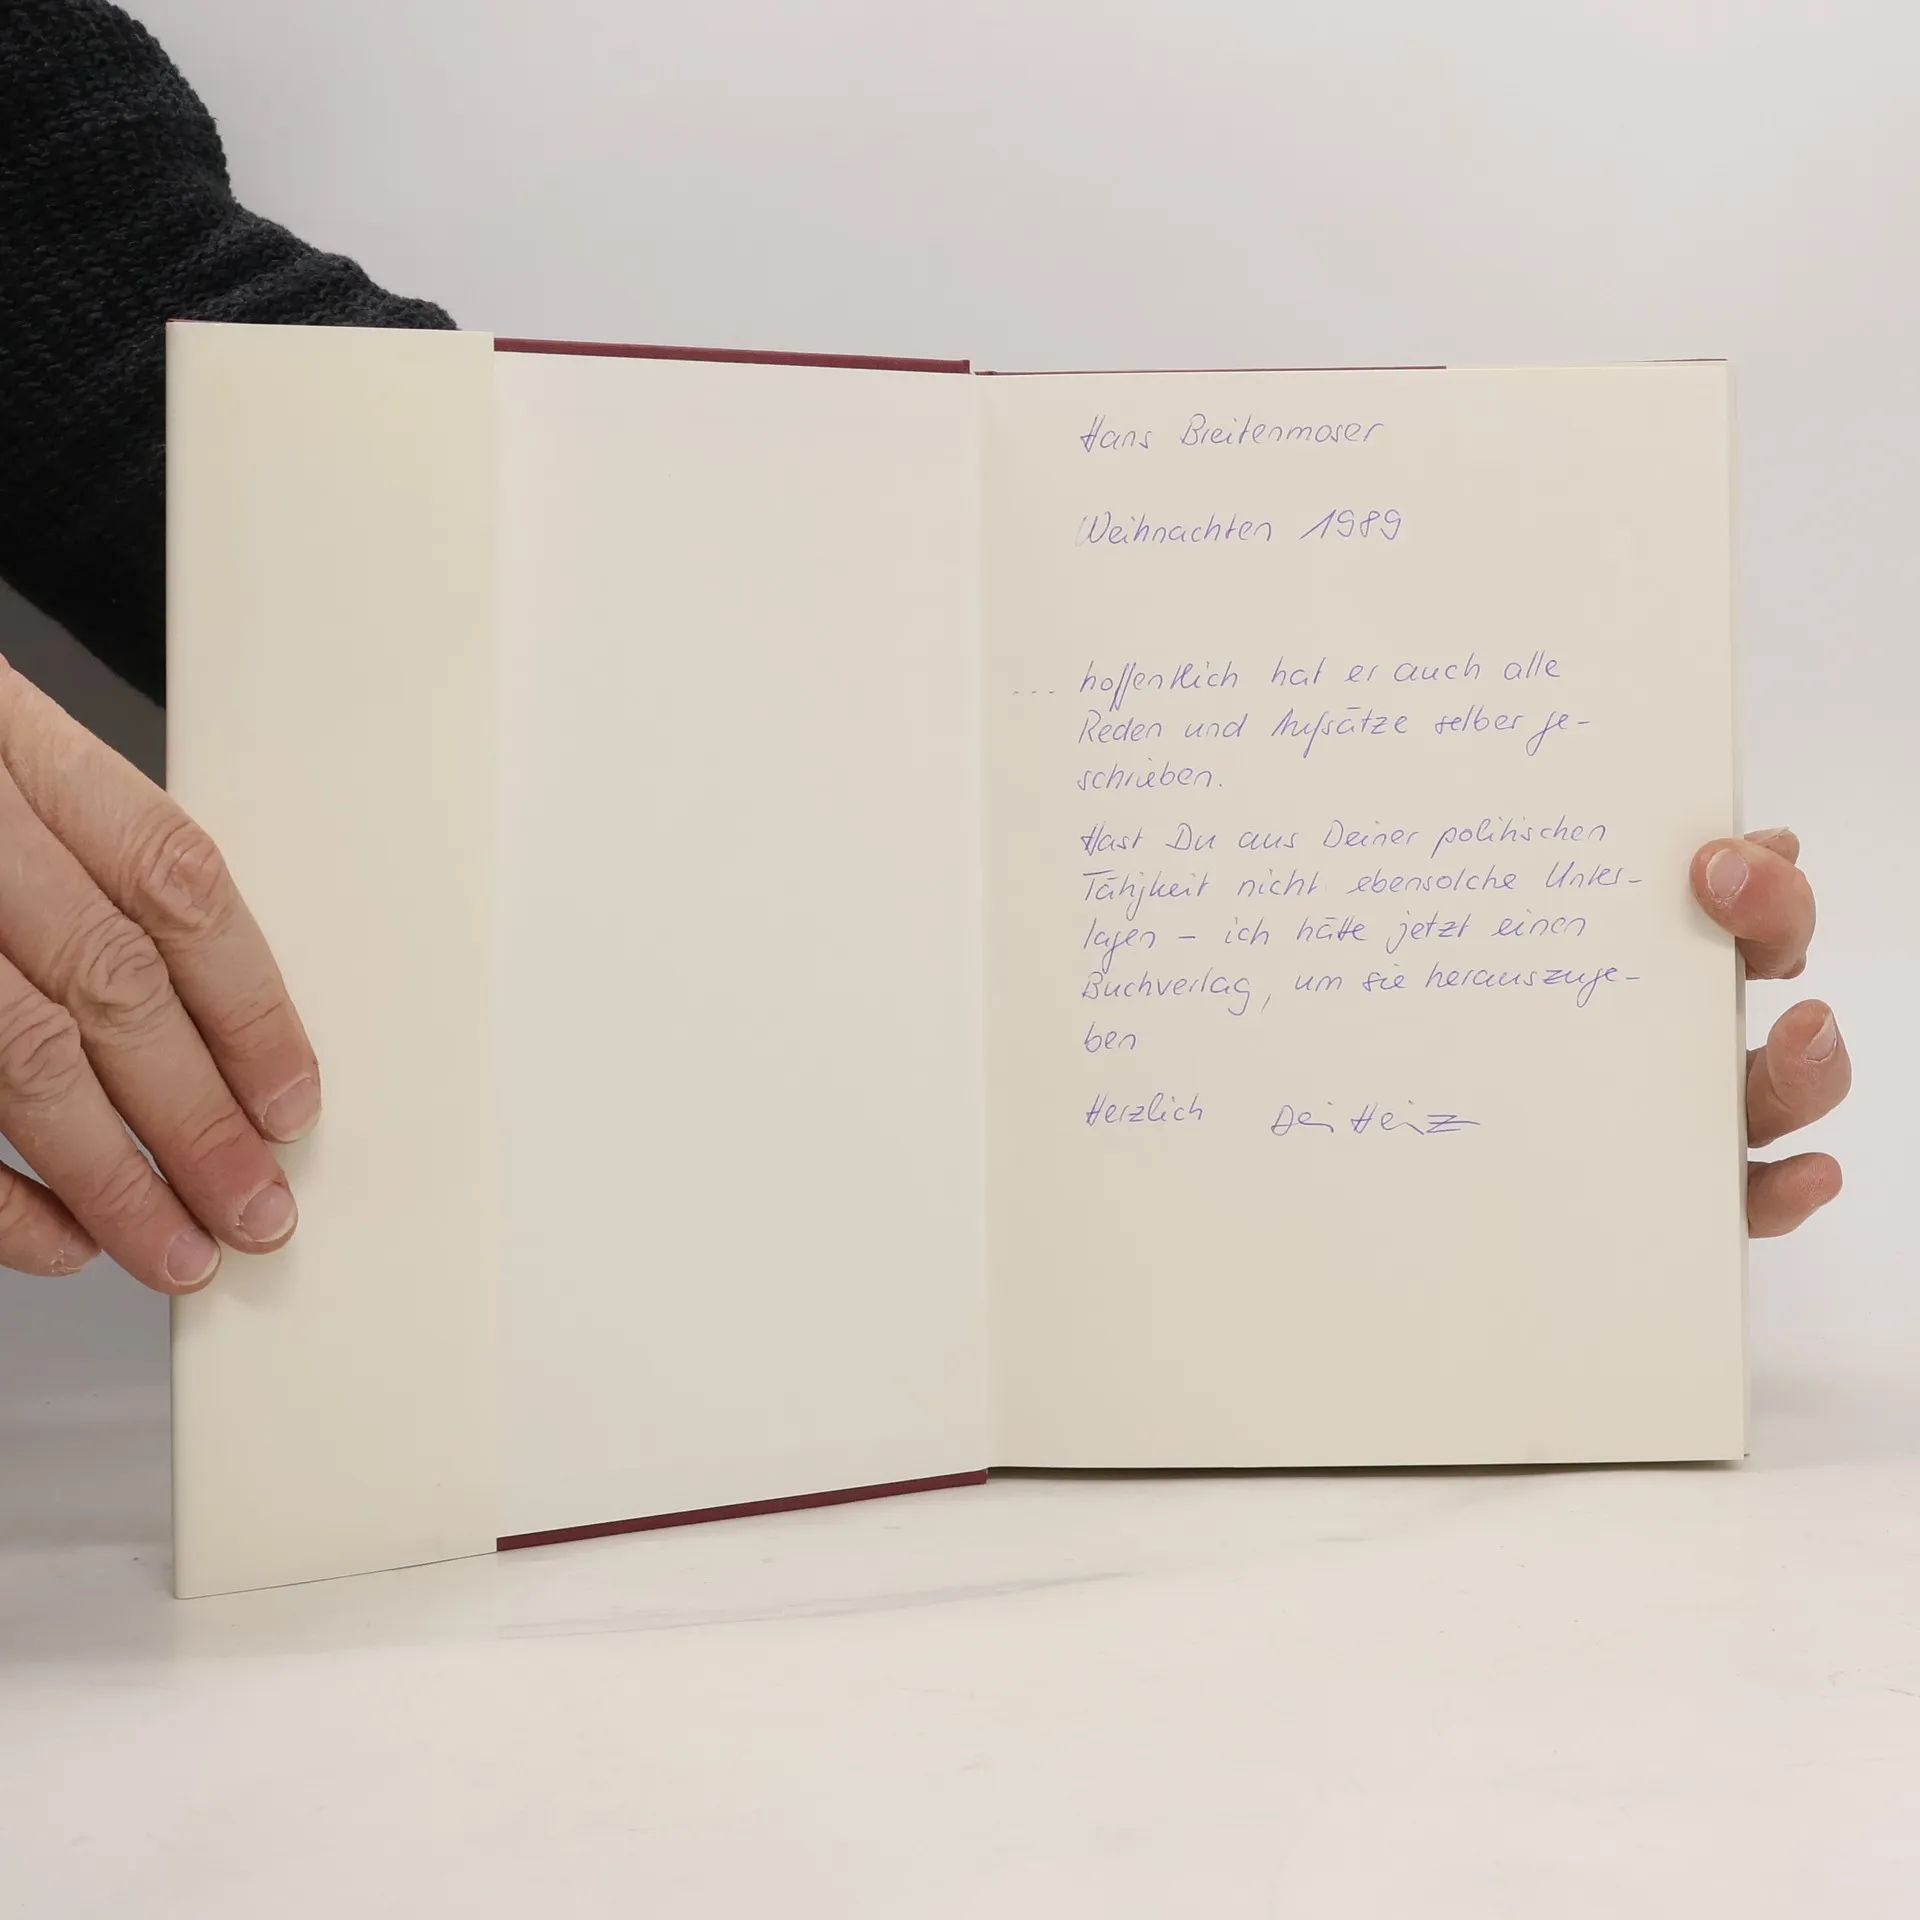 Hans Breitenmoser
Weihnachten 1989
... hoffentlich hat er auch alle
Reden und Aufsätze selber ge-
schrieben.
Hast Du aus Deiner politischen
Tätigkeit nicht ebensolche Unter-
lagen – ich hätte jetzt einen
Buchverlag, um sie herauszuge-
ben
Herzlich Dein Heinz